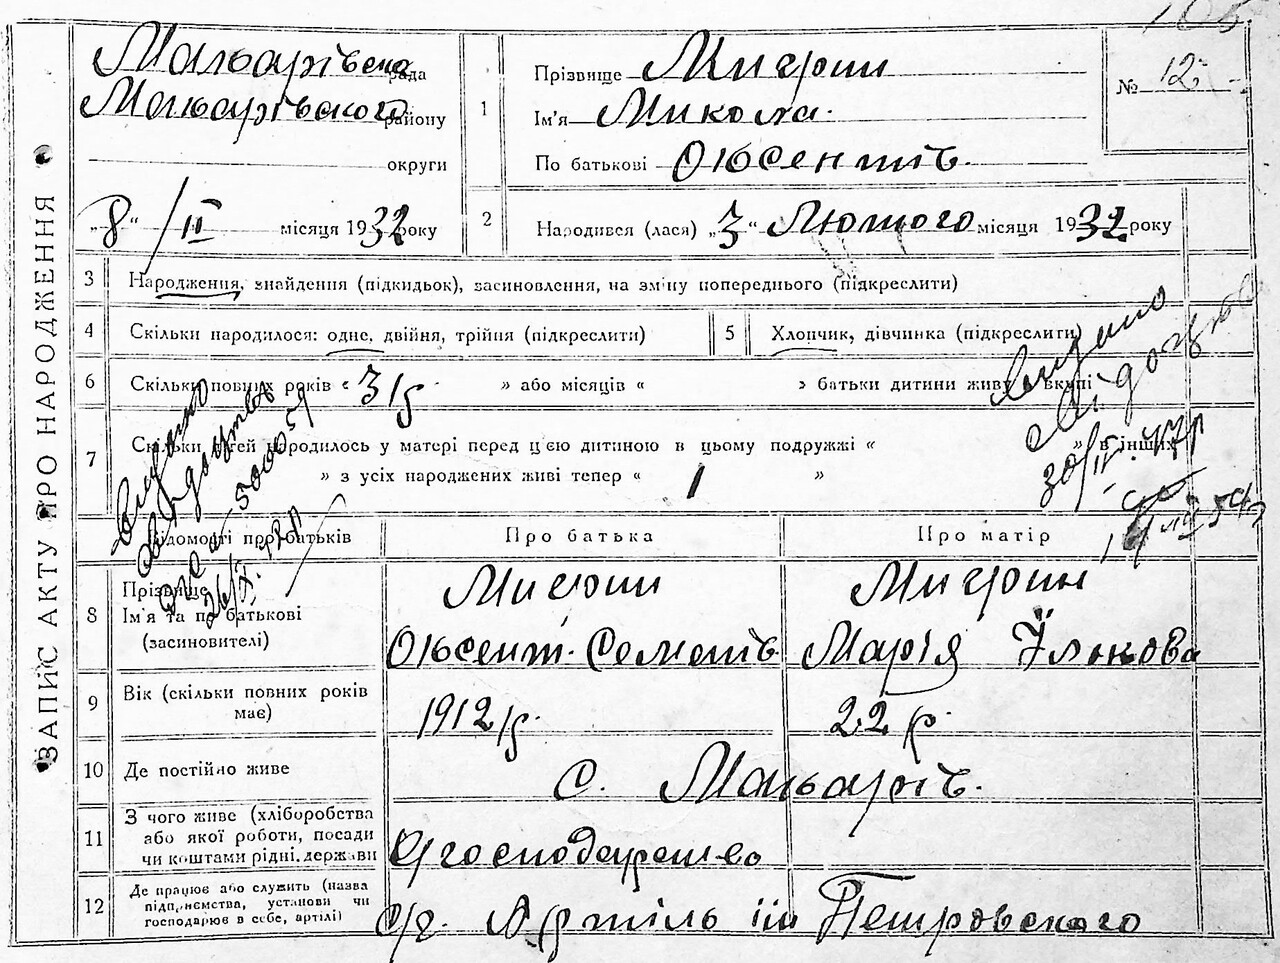 105
ЗАПИС АКТУ ПРО НАРОДЖЕННЯ
Макарівська рада
Макарівського району
округи
„8“ / II місяця 1932 року
1
Прізвище Мигрин
Ім'я Микола.
По батькові Оксентів.
№ 12
2
Народився (лася) „3“ Лютого місяця 1932 року
3
Народження, знайдення (підкидьок), засиновлення, на зміну попереднього (підкреслити)
4
Скільки народилося: одне, двійня, трійня (підкреслити)
5
Хлопчик, дівчинка (підкреслити)
6
Скільки повних років « 3 р » або місяців « » батьки дитини живуть вкупі
7
Скільки дітей народилось у матері перед цією дитиною в цьому подружжі « » в інших
» з усіх народжених живі тепер « 1 »
Видано
свідоцтво
500059
Видано
свідоцтво
Відомості про батьків
Про батька
Про матір
8
Прізвище
Ім'я та по батькові
(засновителі)
Мигрин
Оксент. Семенів
Мигрин
Марія Ількова
9
Вік (скільки повних років має)
1912 р.
22 р.
10
Де постійно живе
с. Макарів.
11
З чого живе (хліборобства
або якої роботи, посади
чи коштами рідні, держави
с/господарство
12
Де працює або служить (назва
підприємства, установи чи
господарює в себе, артілі)
с/г. Артіль ім Петровского